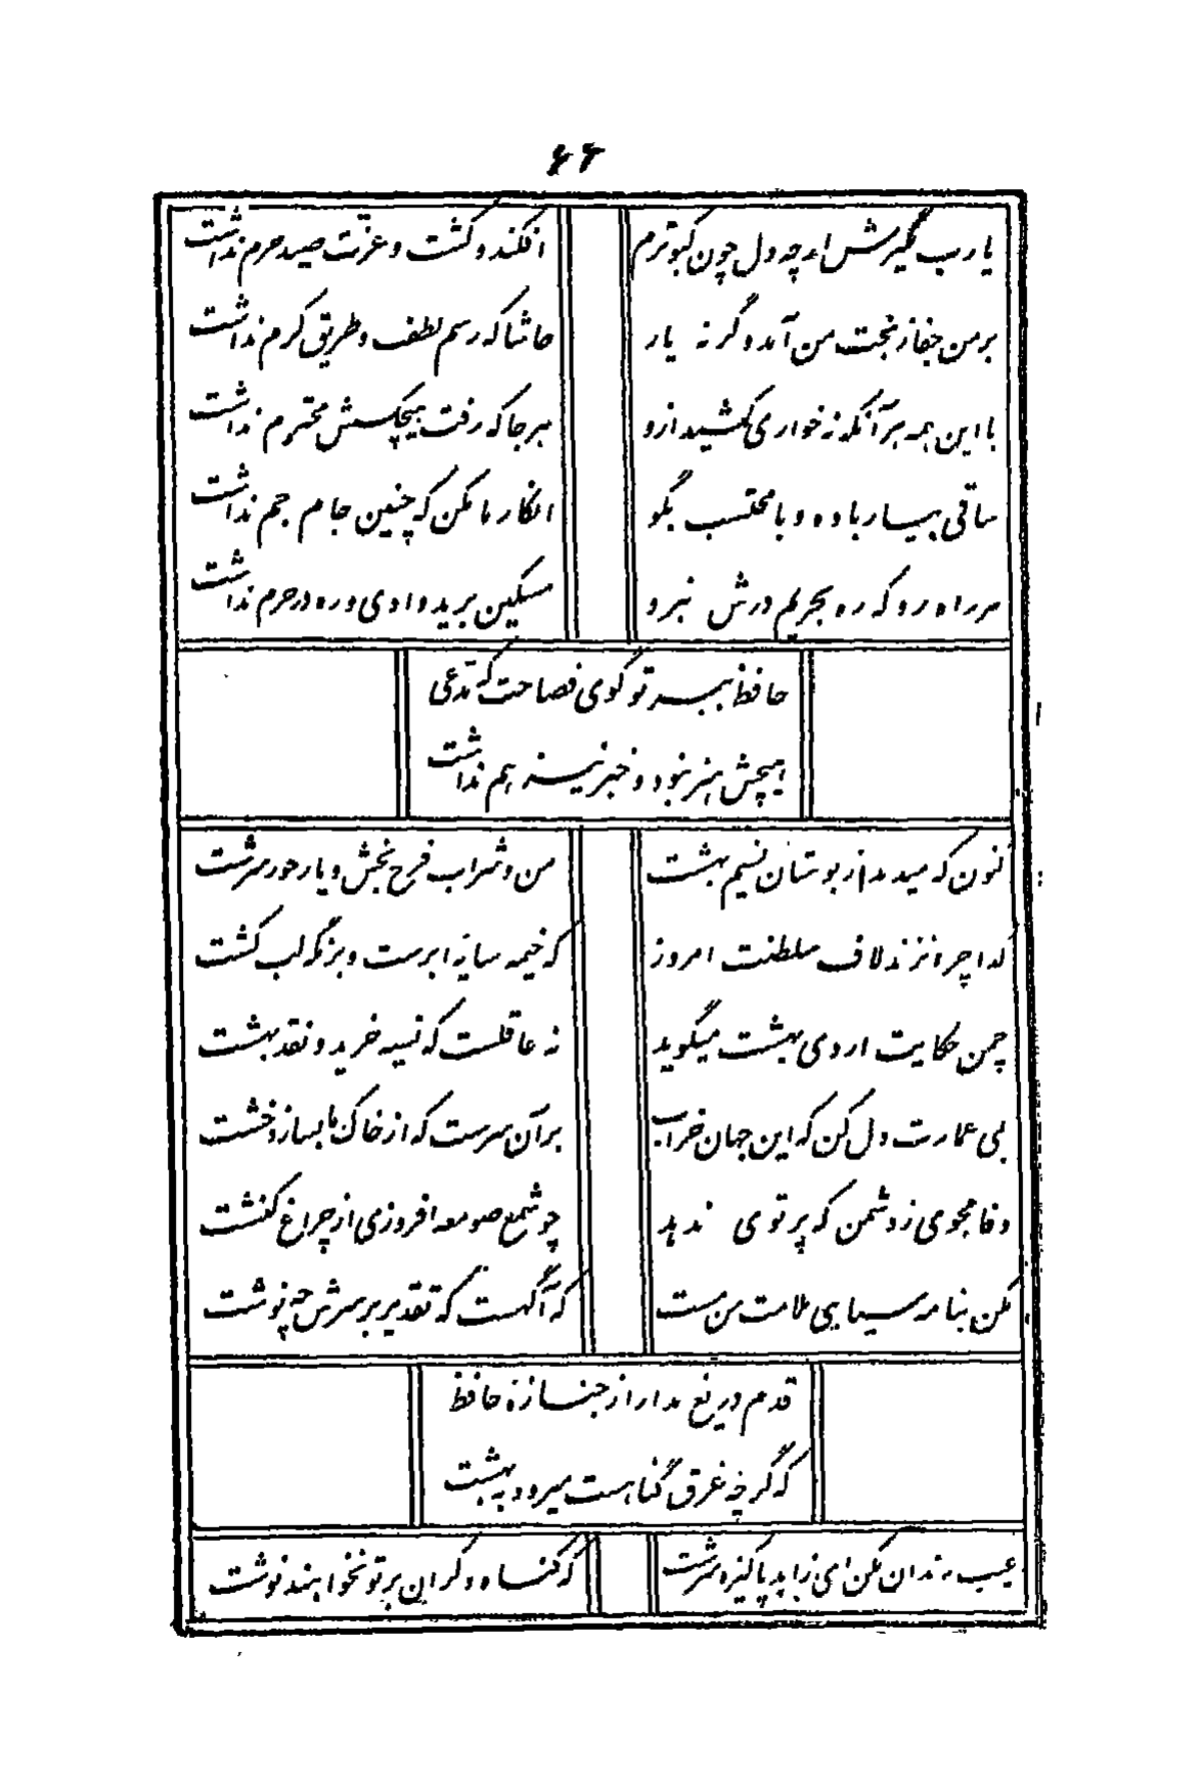 ۶۶
یارب مگیرش ارچه دل چون کبوترم
افکند و کشت و عزت صید حرم نداشت
بر من جفا ز بخت من آمد وگرنه یار
حاشا که رسم لطف و طریق کرم نداشت
با این همه هر آنکه نه خواری کشید ازو
هر جا که رفت هیچکسش محترم نداشت
ساقی بیار باده و با محتسب بگو
انکار ما مکن که چنین جام جم نداشت
هر راه رو که ره بحریم درش نبرد
مسکین برید وادی و ره در حرم نداشت
حافظ ببر تو گوی فصاحت که مدعی
هیچش هنر نبود و خبر نیز هم نداشت
کنون که میدمد از بوستان نسیم بهشت
من و شراب فرح بخش و یار حور سرشت
گدا چرا نزند لاف سلطنت امروز
که خیمه سایهٔ ابرست و بزمگه لب کشت
چمن حکایت اردی بهشت میگوید
نه عاقلست که نسیه خرید و نقد بهشت
بمی عمارت دل کن که این جهان خراب
بر آن سرست که از خاک ما بسازد خشت
وفا مجوی ز دشمن که پرتوی ندهد
چو شمع صومعه افروزی از چراغ کنشت
مکن بنامه سیاهی ملامت من مست
که آگهست که تقدیر بر سرش چه نوشت
قدم دریغ مدار از جنازهٔ حافظ
که گرچه غرق گناهست میرود به بهشت
عیب رندان مکن ای زاهد پاکیزه سرشت
که گناه دگران بر تو نخواهند نوشت